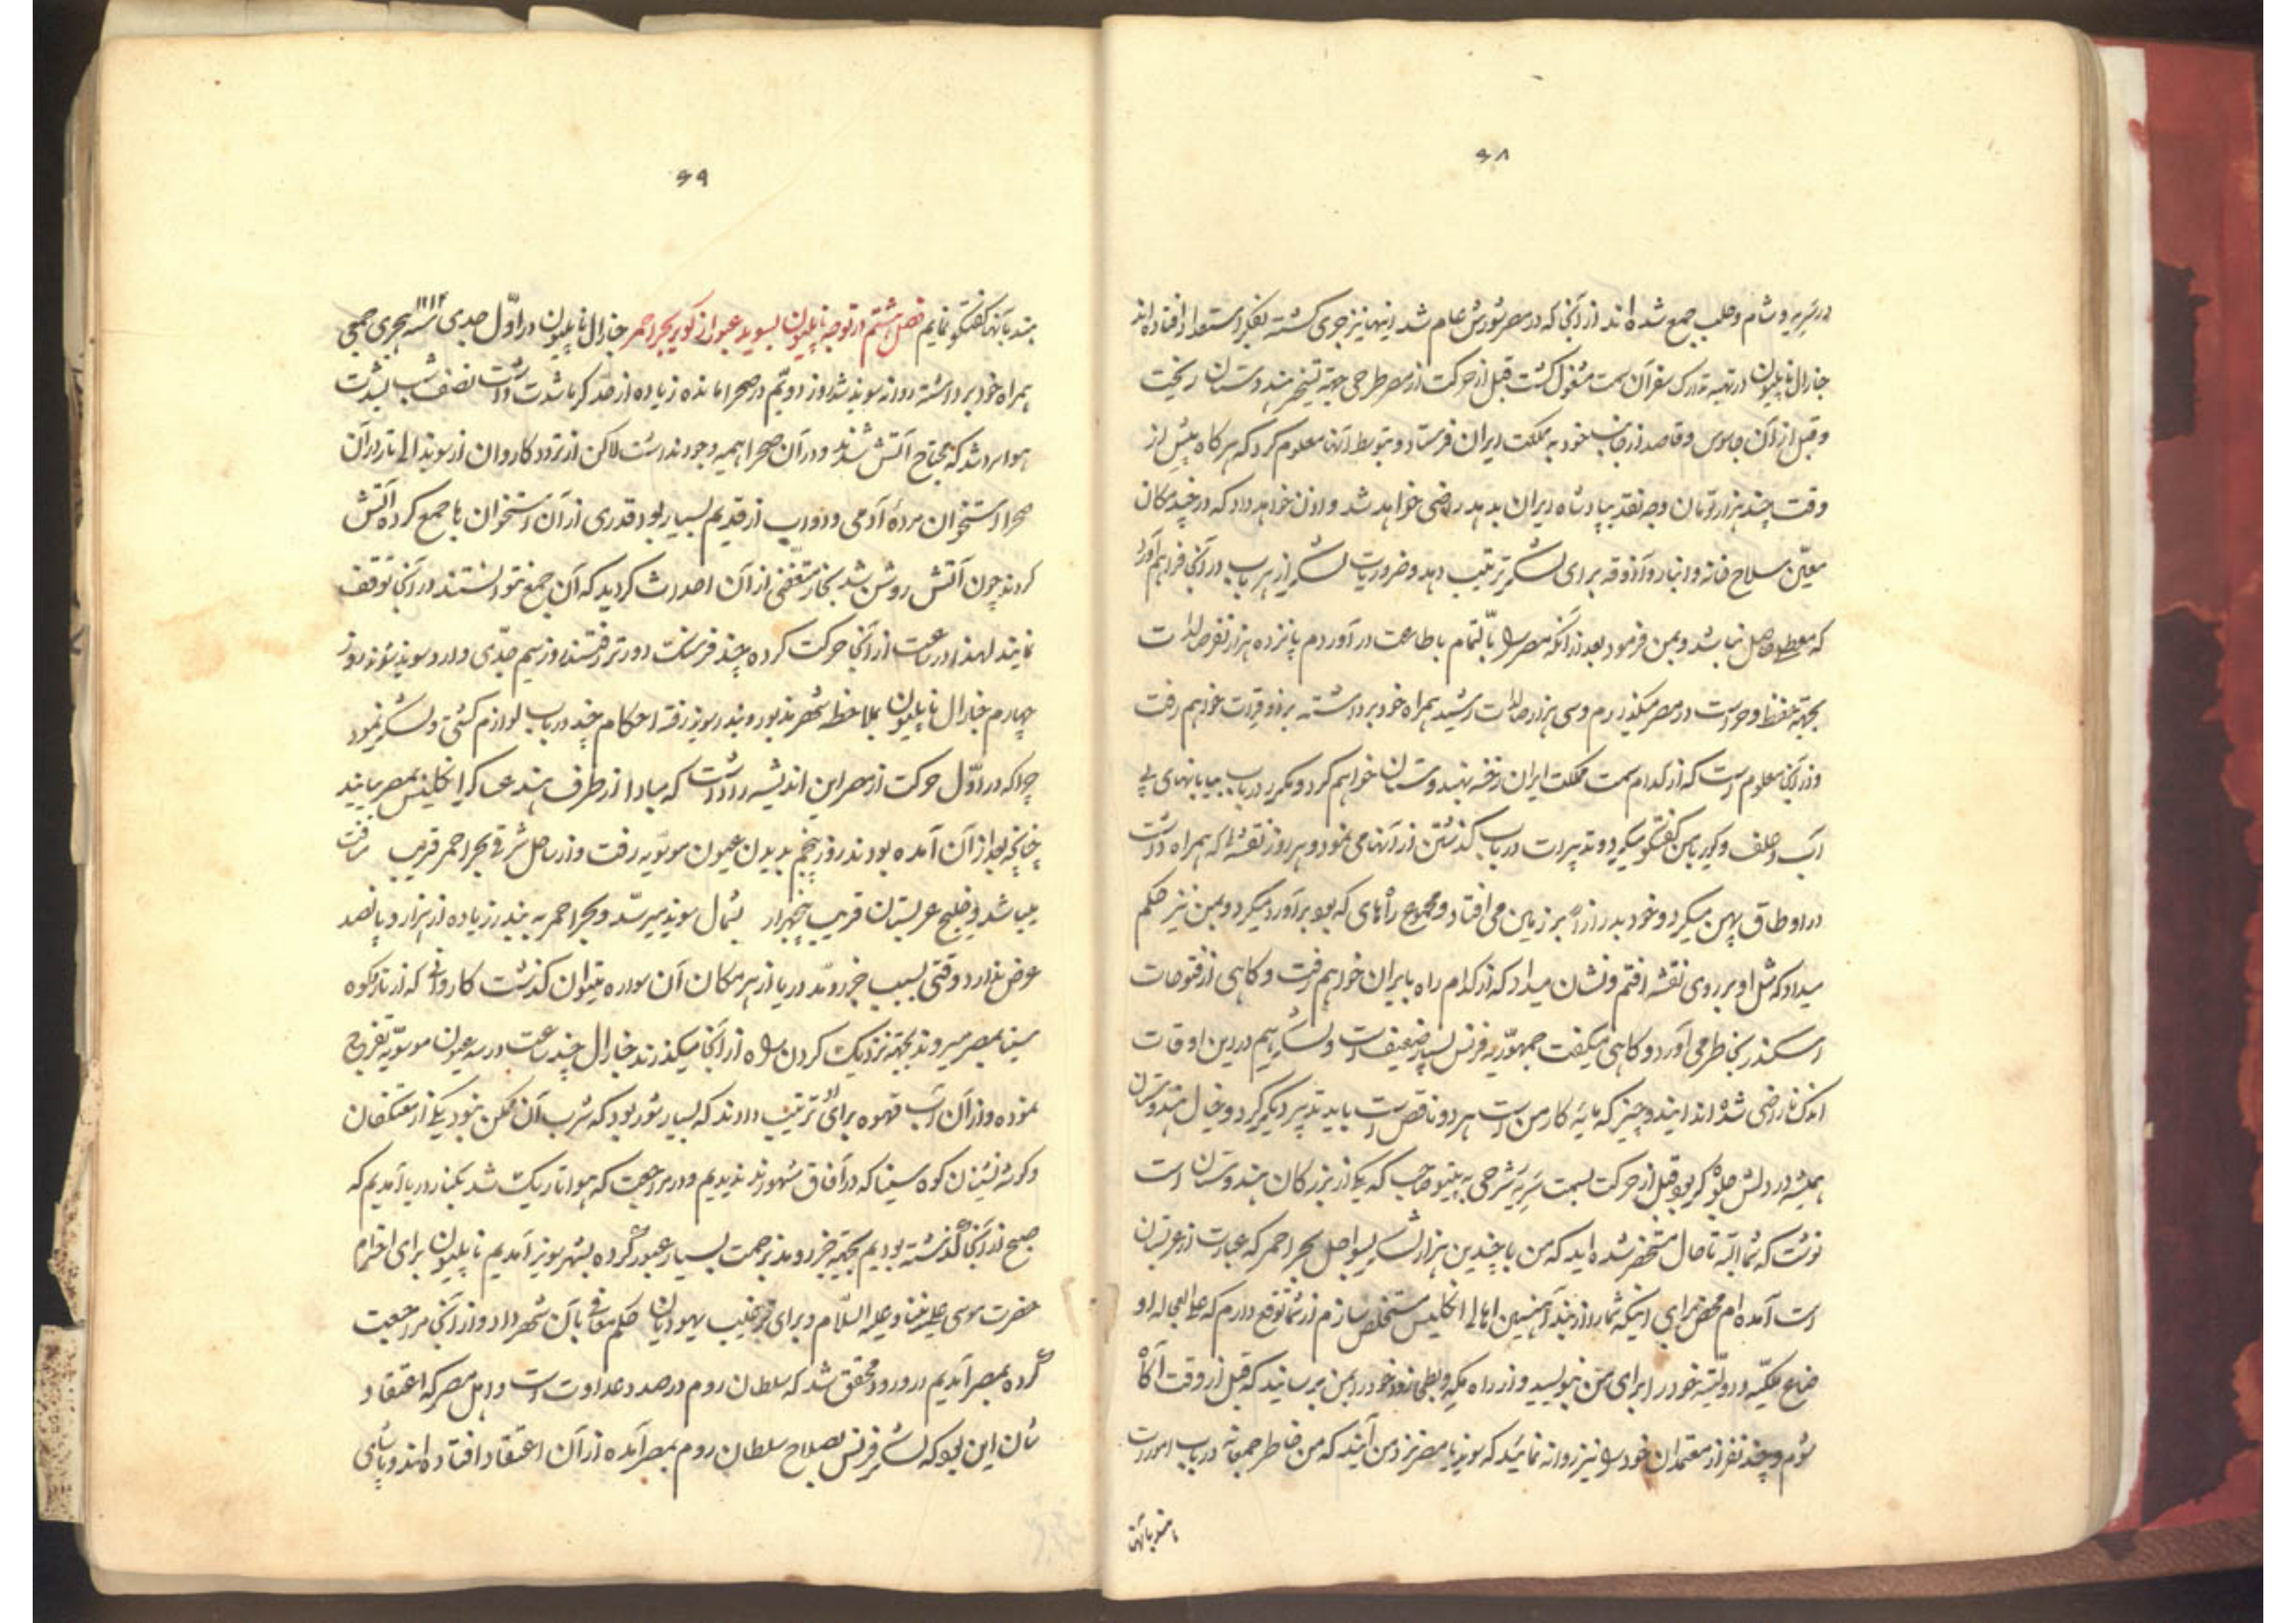 ۶۸
در سریه و شام و حلب جمع شده اند از آنجا که در مصر شورش عام شد اینها نیز جری گشته بفکر استعداد افتاده اند
جنارال ناپلیون در تهیه تدارک سفر آن سمت مشغول گشت قبل از حرکت از مصر طرحی جهة تسخیر هندوستان ریخت
و قبل از آن جاسوس و قاصد از جانب خود به مملکت ایران فرستاد و بتوسط آنها معلوم کرد که هرگاه پیش از
وقت چند هزار تومان وجه نقد بپادشاه ایران بدهد راضی خواهد شد و اذن خواهد داد که در چند مکان
معین سلاح خانه و انبار و آذوقه برای لشکر ترتیب دهد و ضروریات لشکر از هر باب در آنجا فراهم آورد
که معطلی حاصل نباشد و بمن فرمود بعد از آنکه مصر را بالتمام باطاعت در آوردم پانزده هزار نفر صالدات
بجهة حفظ و حراست در مصر میگذارم و سی هزار صالدات رشید همراه خود برداشته برود فرات خواهم رفت
و از آنجا معلوم است که از کدام سمت مملکت ایران رخنه بهندوستان خواهم کرد و مکرر در باب بیابانهای بی
آب و علف و کویر با من گفتگو میکرد و تدبیرات در باب گذشتن از آنها می نمود و هر روز نقشه را که همراه داشت
در اوطاق پهن میکرد و خود بدرازا بر زمین می افتاد و مجموع راههای که بود برآورد میکرد و بمن نیز حکم
میداد که مثل او بر روی نقشه افتم و نشان میداد که از کدام راه بایران خواهم رفت و کاهی از فتوحات
اسکندر بخاطر می آورد و کاهی میکفت جمهوریه فرنس بسیار ضعیف است و لشکر هم در این اوقات
اندک ناراضی شده اند این دو چیز که مایه کار من است هر دو ناقص است باید تدبیر دیگر کرد و خیال هندوستان
همیشه در دلش جلوه گر بود قبل از حرکت بسمت سریه شرحی به تیپو صاحب که یکی از بزرکان هندوستان است
نوشت که شما البته تا حال مستحضر شده اید که من با چندین هزار لشکر بسواحل بحر احمر که عبارت از عربستان
است آمده ام محض برای اینکه شما را از بند آهنین اهالی انکلیس مستخلص سازم از شما توقع دارم که علی العجاله او
ضاع ملکیه و دولتیه خود را برای من بنویسید و از راه مکه و بطی زود خود را بمن برسانید که قبل از وقت آگاه
شوم و چند نفر از معتمدان خود را نیز روانه نمائید که بسوند یا مصر نزد من آیند که من خاطر جمعانه در باب امورات
هند بآنها
۶۹
هند بآنها گفتگو نمایم فصل هشتم در توجه ناپلیون بسوید و عبور از کویر بحر احمر جنارال ناپلیون در اول جدی ۱۲۱۳ سنه هجری جمعی
همراه خود برداشته روانه سوید شد روز دویم در صحرا مانده زیاده از حد گرما شدت داشت نصف شب بشدت
هوا سرد شد که محتاج آتش شدند و در آن صحرا هیمه وجود نداشت لاکن از تردد کاروان از سوید الی تار در آن
صحرا استخوان مردهٔ آدمی و دواب از قدیم بسیار بود قدری از آن استخوان ها جمع کرده آتش
کردند چون آتش روشن شد بخار متعفنی از آن احداث کردید که آن جمع نتوانستند در آنجا توقف
نمایند لهذا در ساعت از آنجا حرکت کرده چند فرسنک دورتر رفتند روز سیم جدی وارد سوید شوند روز
چهارم جنارال ناپلیون بملاحظه شهر مذبور و بندر سویز رفته احکام چند در باب لوازم کشتی و لشکر نمود
چرا که در اول حرکت از مصر این اندیشه را داشت که مبادا از طرف هند عساکر انکلیس بمصر بیایند
چنانچه بعد از آن آمده بودند روز پنجم بدیدن عیون موسویه رفت و از ساحل شرقی بحر احمر قریب مسافت
میباشد و خلیج عربستان قریب پنجهزار بشمال سوید میرسد و بحر احمر به بندر زیاده از هزار و پانصد
عرض ندارد وقتی بسبب جزر و مد دریا از هر مکان آن سواره میتوان کذشت کاروانی که از تار و کوه
سینا بمصر میروند بجهة نزدیک کردن راه از آنجا میکذرند جنارال چند ساعت در سر عیون موسویه تفرج
نموده و از آن آب قهوه برای او ترتیب دادند که بسیار شور بود که شرب آن ممکن نبود یکی از معتکفان
و کوشه نشینان کوه سینا که در آفاق مشهورند ندیدیم و در مراجعت که هوا تاریک شد بکنار دریا آمدیم که
صبح از آنجا گذشته بودیم بجهة جزر و مد بزحمت بسیار عبور کرده بشهر سویز آمدیم ناپلیون برای احترام
حضرت موسی علی نبینا و علیه السلام و برای ترغیب یهودیان حکم معافی بآن شهر داد و از آنجا مراجعت
کرده بمصر آمدیم در ورود محقق شد که سلطان روم در صدد عداوت است و اهل مصر که اعتقاد
شان این بود که لشکر فرنس بصلاح سلطان روم بمصر آمده از آن اعتقاد افتاده اند و پاشای